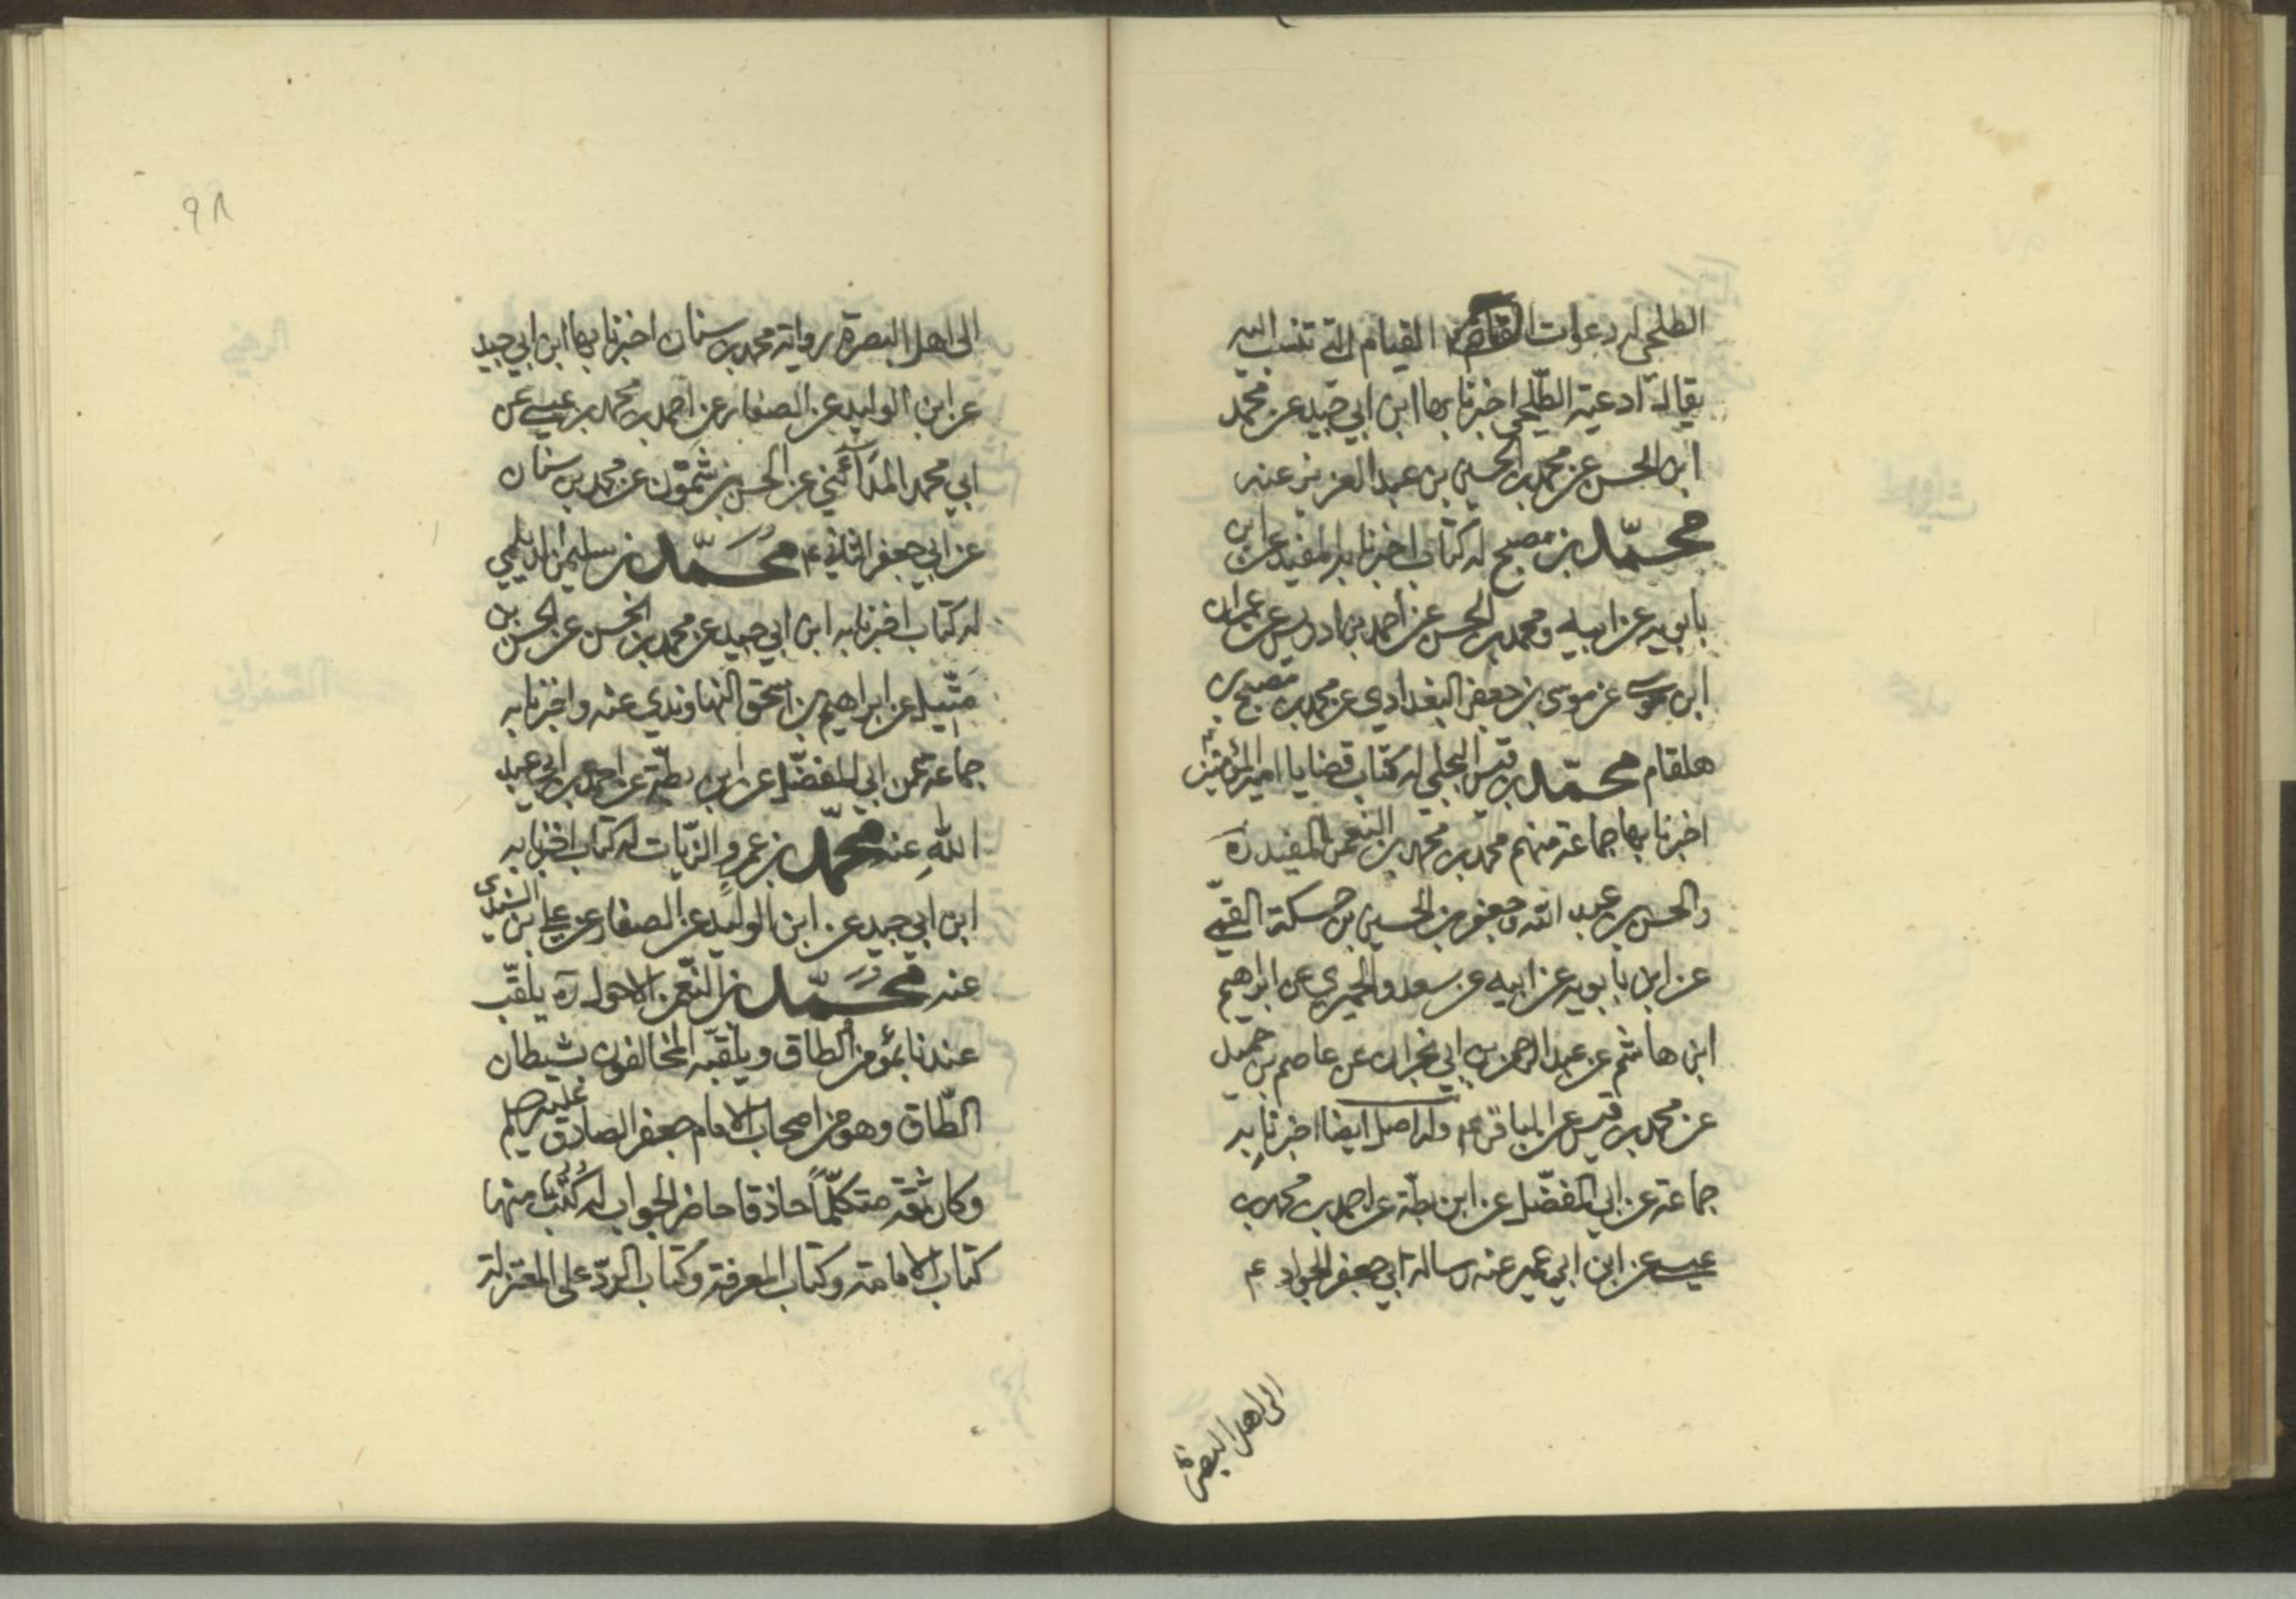 الطلحى له دعوات القيام التى تنسب اليه
يقال ادعية الطلحى اخبرنا بها ابن ابي جيد عن محمد
ابن الحسن عن محمد بن الحسين بن عبد العزيز عنه
محمّد بن مصبح له كتاب اخبرنا به المفيد عن ابن
بابويه عن ابيه ومحمد بن الحسن عن احمد بن ادريس عن عمران
ابن موسى عن موسى بن جعفر البغدادي عن محمد بن مصبح بن
هلقام محمّد بن قيس البجلي له كتاب قضايا امير المؤمنين
اخبرنا بها جماعة منهم محمد بن محمد بن النعمن المفيد ره
والحسن بن عبيد الله وجعفر بن الحسين بن حسكة القمّي
عن ابن بابويه عن ابيه عن سعد والحميري عن ابراهيم
ابن هاشم عن عبد الرحمن بن ابي نجران عن عاصم بن حميد
عن محمد بن قيس عن الباقر عم وله اصل ايضا اخبرنا به
جماعة عن ابي المفضّل عن ابن بطّة عن احمد بن محمد بن
عيسى عن ابن ابي عمير عنه رسالة ابي جعفر الجواد عم
الى اهل البصرة
٩٨
الى اهل البصرة رواية محمد بن سنان اخبرنا بها ابن ابي جيد
عن ابن الوليد عن الصفار عن احمد بن محمد بن عيسى عن
ابي محمد المدآئني عن الحسن بن شمّون عن محمد بن سنان
عن ابي جعفر الثاني عم مُحَمَّد بن سليمن الديلمي
له كتاب اخبرنا به ابن ابي جيد عن محمد بن الحسن عن الحسن بن
متّيل عن ابراهيم بن اسحق النهاوندي عنه واخبرنا به
جماعة عن ابي المفضّل عن ابن بطّة عن احمد بن ابي عبد
اللّٰه عنه محمّد بن عمرو الزيّات له كتاب اخبرنا به
ابن ابي جيد عن ابن الوليد عن الصفار عن علي بن السندى
عنه مُحَمَّد بن النّعمن الاحول ره يلقّب
عندنا بمؤمن الطاق ويلقّبه المخالفون بشيطان
الطّاق وهو من اصحاب الامام جعفر الصادق عليه سلم
وكان ثقة متكلّماً حاذقا حاضر الجواب له كُتُب منها
كتاب الامامة وكتاب المعرفة وكتاب الردّ على المعتزلة